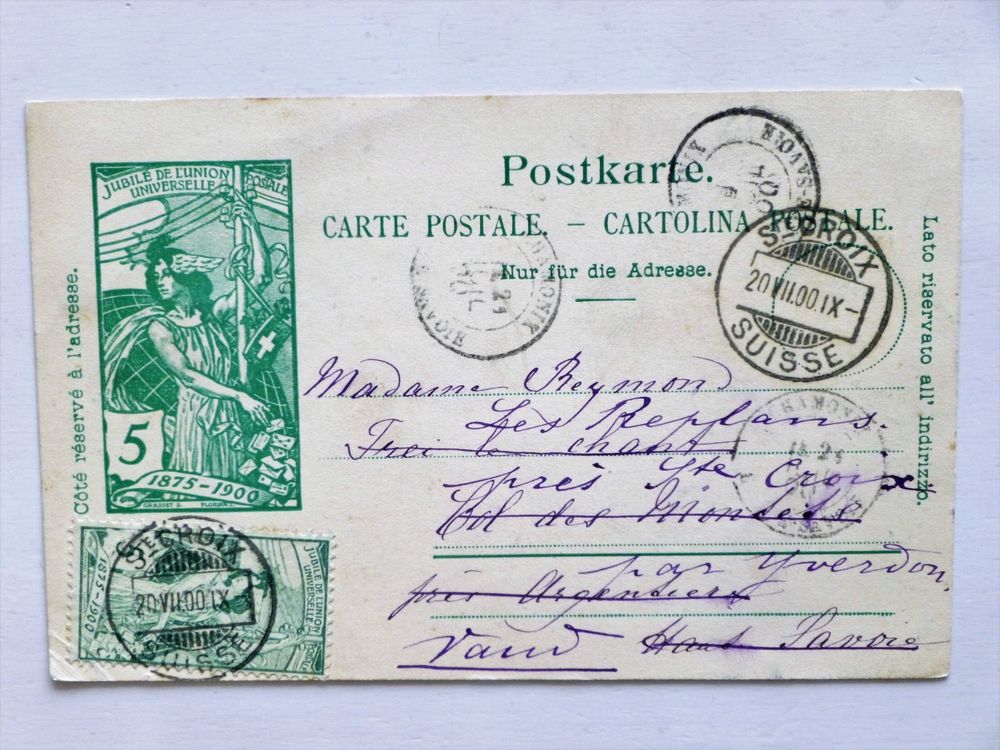 Postkarte.
CARTE POSTALE. – CARTOLINA POSTALE.
Nur für die Adresse.
Côté réservé à l'adresse.
Lato riservato all' indirizzo.
JUBILÉ DE L'UNION
UNIVERSELLE POSTALE
5
1875-1900
GRASSET E. FLORIAN
STE CROIX
20 VII.00.IX-
SUISSE
CHAMONIX
SAVOIE
Madame Reymond
Les Replans.
près Ste Croix
Col des Montets
par Yverdon,
près Argentière
Vaud Haut Savoie
JUBILÉ DE L'UNION
UNIVERSELLE POSTALE
1875-1900
STE CROIX
SUISSE